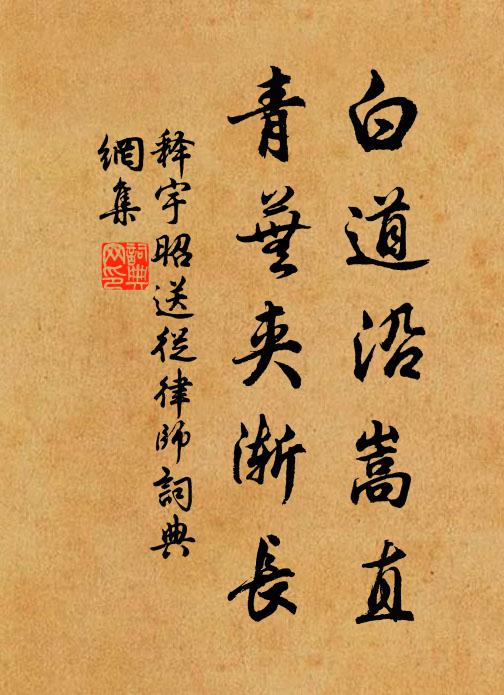 白道沿嵩直
青蕪夾漸長
释宇昭送從律師詞典
網集
詞典
网印